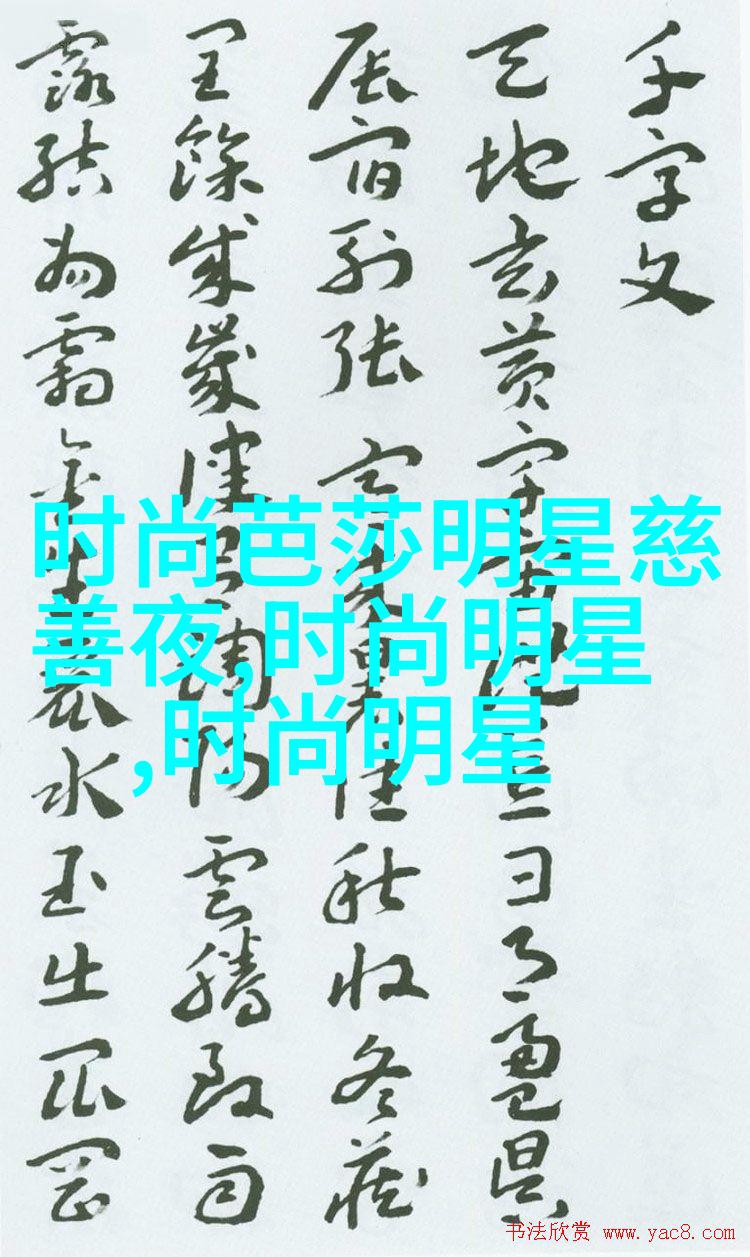 千字文
天地玄黃宇宙洪荒日月盈昃
辰宿列張寒來暑往秋收冬藏
閏餘成歲律呂調陽雲騰致雨
露結為霜金生麗水玉出崑岡
时尚芭莎明星慈
善夜,时尚明星
,时尚明星
书法欣赏 www.yac8.com